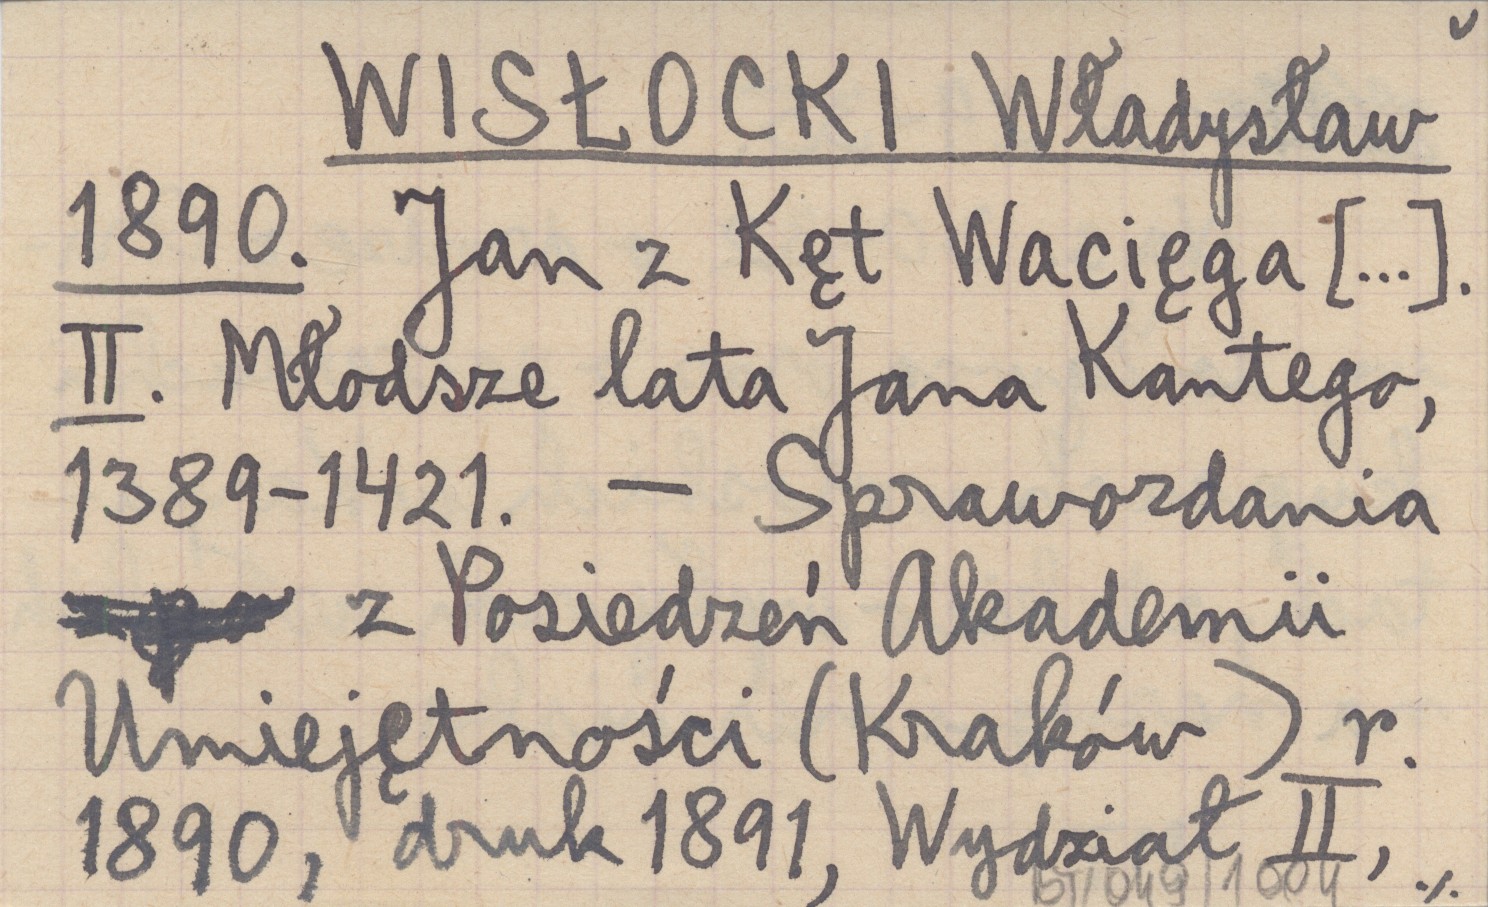 WISŁOCKI Władysław
1890. Jan z Kęt Wacięga [...].
II. Młodsze lata Jana Kantego,
1389-1421. — Sprawozdania
z Posiedzeń Akademii
Umiejętności (Kraków) r.
1890, druk 1891, Wydział II,
./.
BT/049/1004